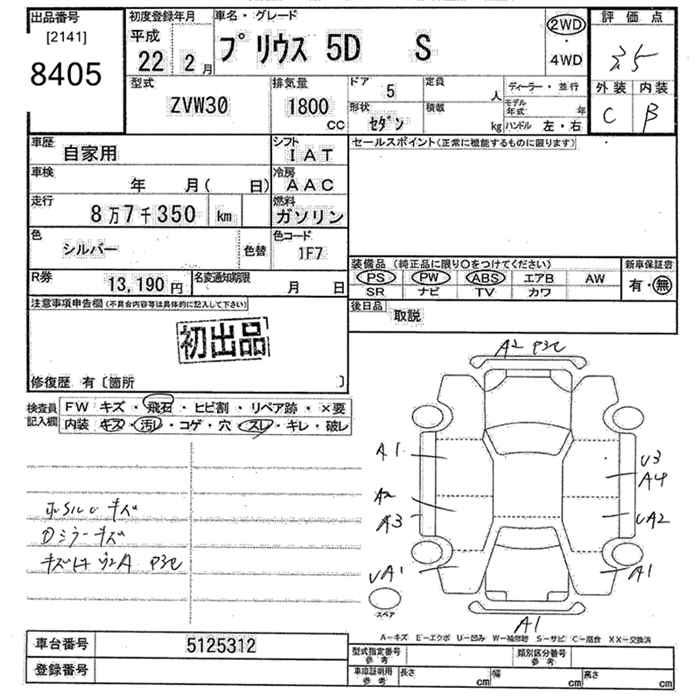 出品番号
[2141]
8405
初度登録年月
平成
22年 2月
車名・グレード
プリウス 5D S
2WD
・
4WD
評価点
3.5
外装 内装
C B
型式
ZVW30
排気量
1800
CC
ドア 5
定員 人
形状 セダン
積載 kg
ディーラー・並行
モデル年式 年
ハンドル 左・右
車歴
自家用
シフト
IAT
車検
年 月( 日)
冷房
AAC
走行
8万7千350 km
燃料
ガソリン
色
シルバー
色替
色コード
1F7
R券
13,190円
名変通知期限
月 日
セールスポイント(正常に機能するものに限ります)
装備品 (純正品に限り○をつけてください)
PS PW ABS エアB AW
SR ナビ TV カワ
新車保証書
有・無
後日品
取説
注意事項申告欄(不具合内容等は具体的に記入して下さい)
初出品
修復歴 有〔箇所 〕
検査員記入欄
FW キズ・飛石・ヒビ割・リペア跡・×要
内装 キズ・汚レ・コゲ・穴・スレ・キレ・破レ
Dミラーキズ
A2 P3C
A1
A2
A3
UA1
U3
A4
UA2
A1
A1
スペア
A-キズ E-エクボ U-凹み W-補修跡 S-サビ C-腐食 XX-交換済
車台番号
5125312
登録番号
型式指定番号
参考
類別区分番号
参考
車庫証明用
参考
長さ cm
幅 cm
高さ cm